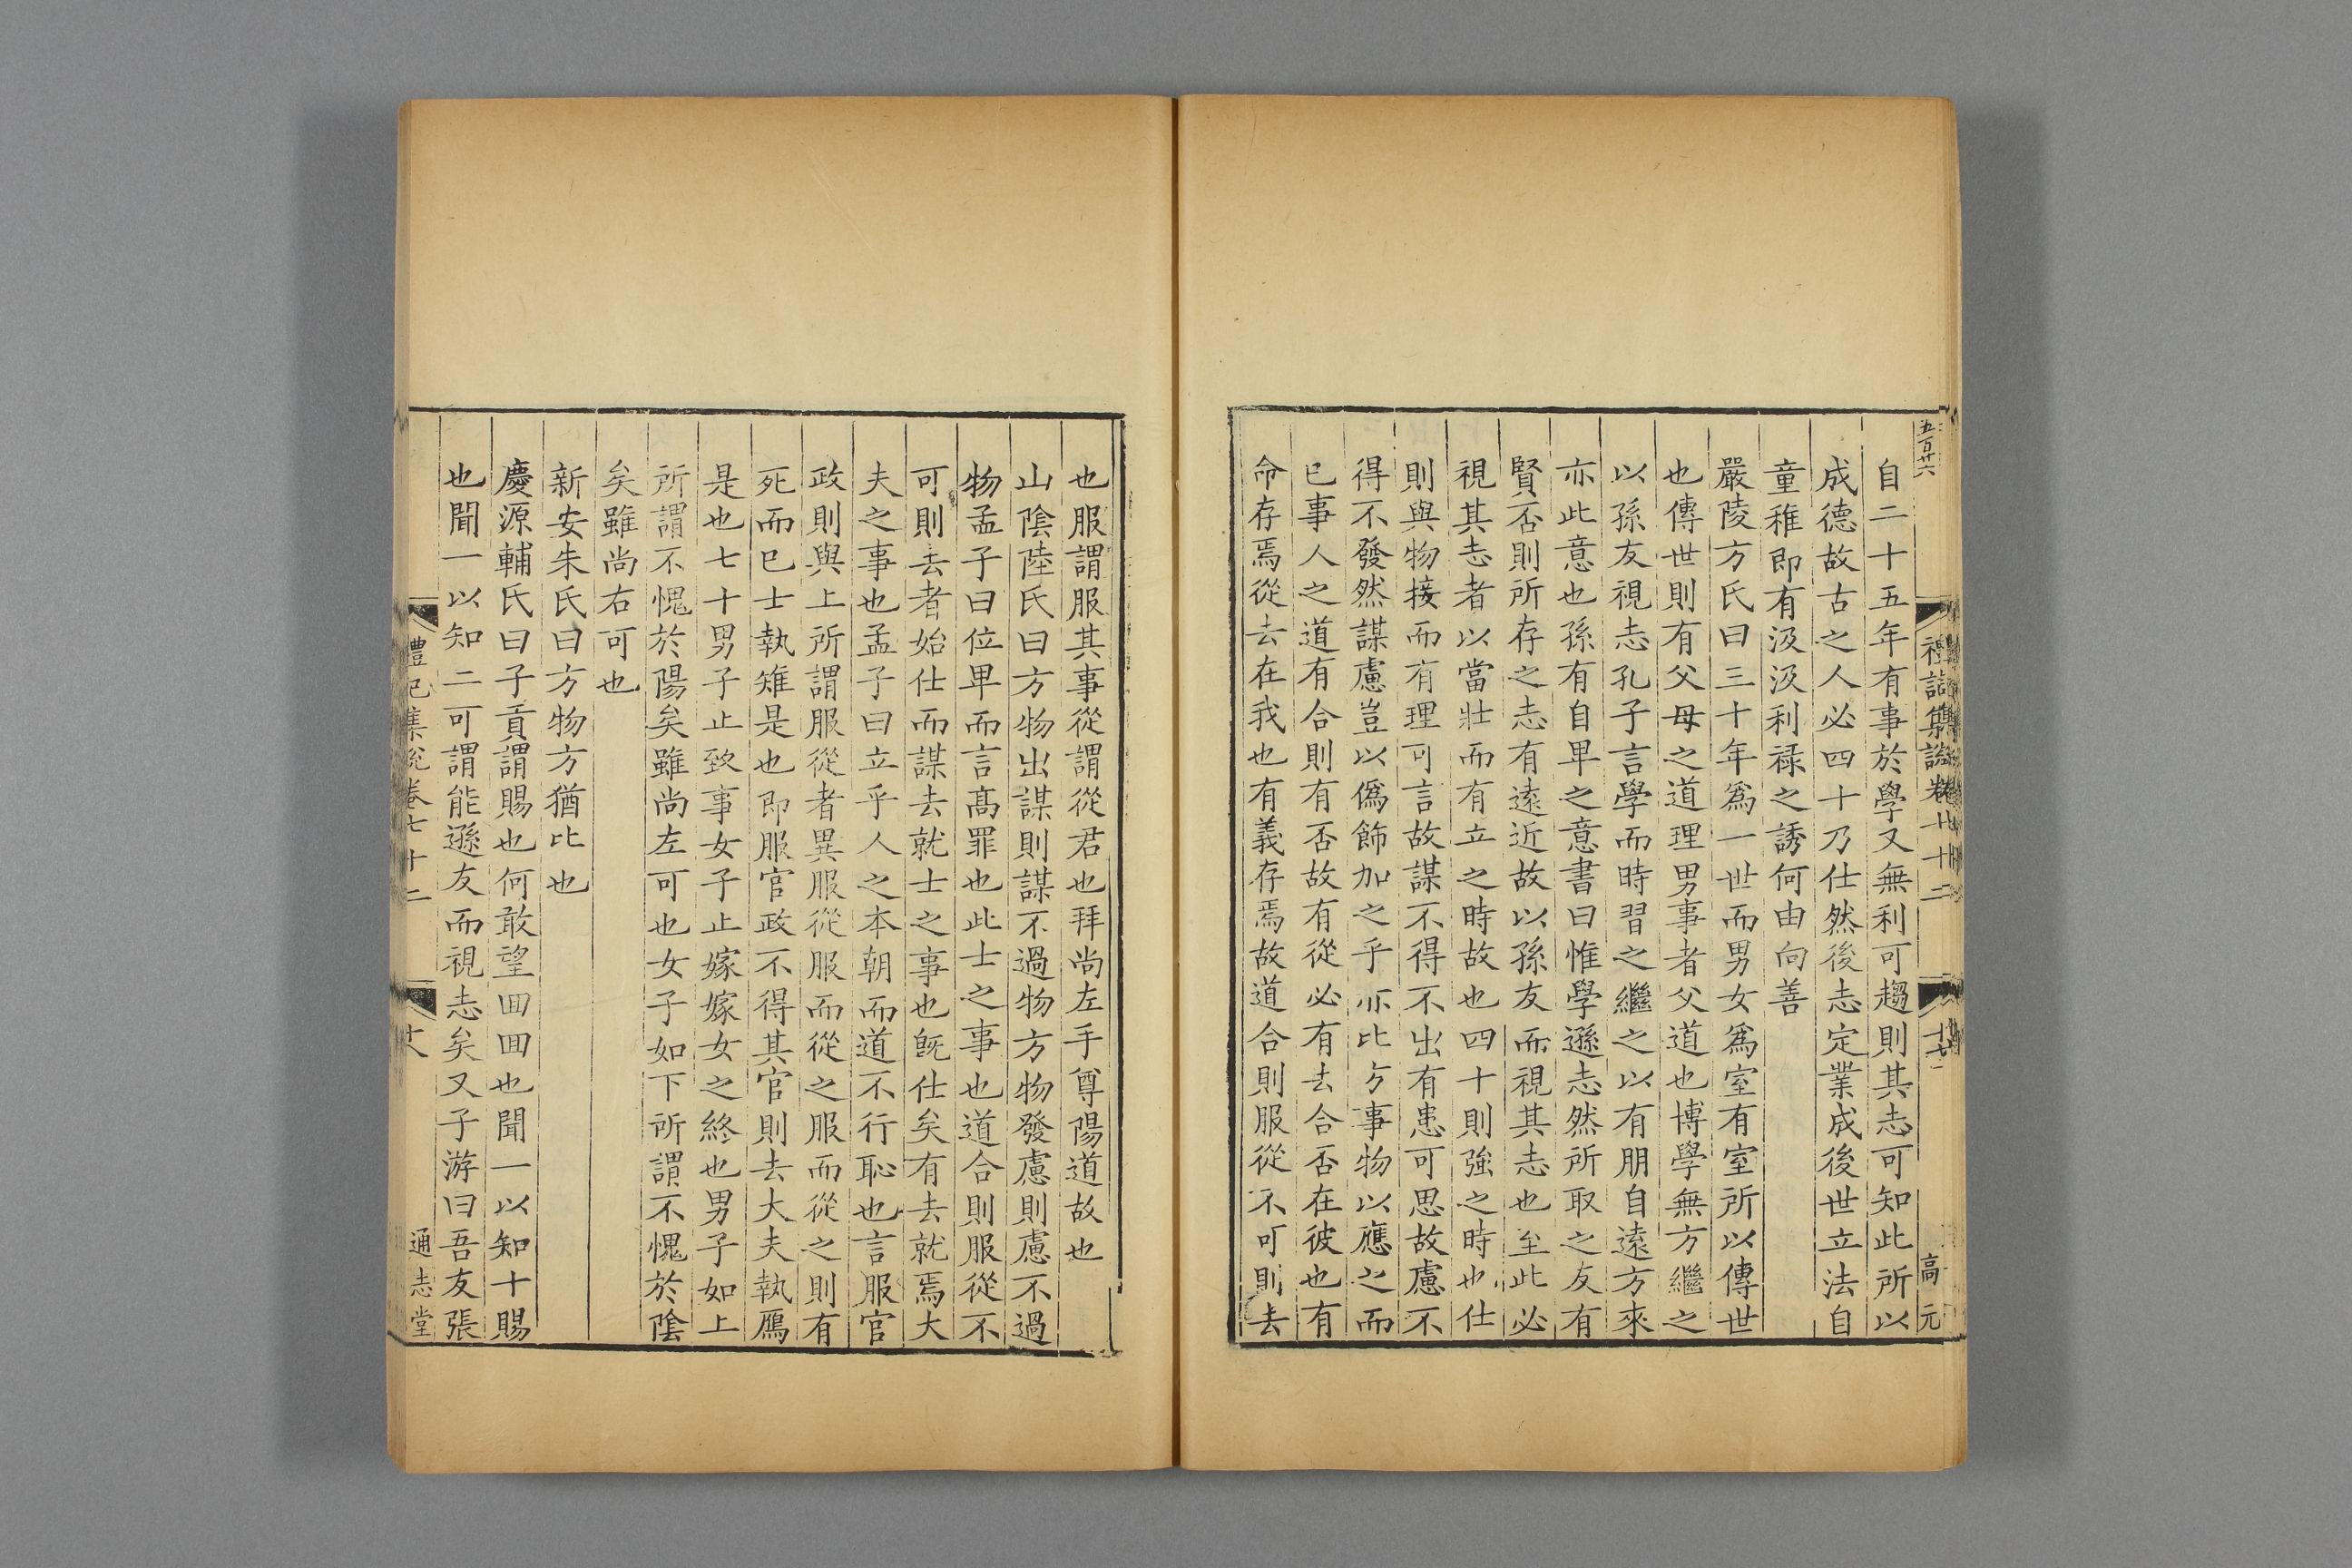 五百廿六
禮記集說卷七十二
十七
高元
自二十五年有事於學又無利可趨則其志可知此所以
成德故古之人必四十乃仕然後志定業成後世立法自
童稚即有汲汲利祿之誘何由向善
嚴陵方氏曰三十年爲一世而男女爲室有室所以傳世
也傳世則有父母之道理男事者父道也博學無方繼之
以孫友視志孔子言學而時習之繼之以有朋自遠方來
亦此意也孫有自卑之意書曰惟學遜志然所取之友有
賢否則所存之志有遠近故以孫友而視其志也至此必
視其志者以當壯而有立之時故也四十則強之時也仕
則與物接而有理可言故謀不得不出有患可思故慮不
得不發然謀慮豈以僞飾加之乎亦比方事物以應之而
已事人之道有合則有否故有從必有去合否在彼也有
命存焉從去在我也有義存焉故道合則服從不可則去
也服謂服其事從謂從君也拜尚左手尊陽道故也
山陰陸氏曰方物出謀則謀不過物方物發慮則慮不過
物孟子曰位卑而言高罪也此士之事也道合則服從不
可則去者始仕而謀去就士之事也旣仕矣有去就焉大
夫之事也孟子曰立乎人之本朝而道不行恥也言服官
政則與上所謂服從者異服從服而從之服而從之則有
死而已士執雉是也即服官政不得其官則去大夫執鴈
是也七十男子止致事女子止嫁嫁女之終也男子如上
所謂不愧於陽矣雖尚左可也女子如下所謂不愧於陰
矣雖尚右可也
新安朱氏曰方物方猶比也
慶源輔氏曰子貢謂賜也何敢望囬囬也聞一以知十賜
也聞一以知二可謂能遜友而視志矣又子游曰吾友張
禮記集說卷七十二
十八
通志堂